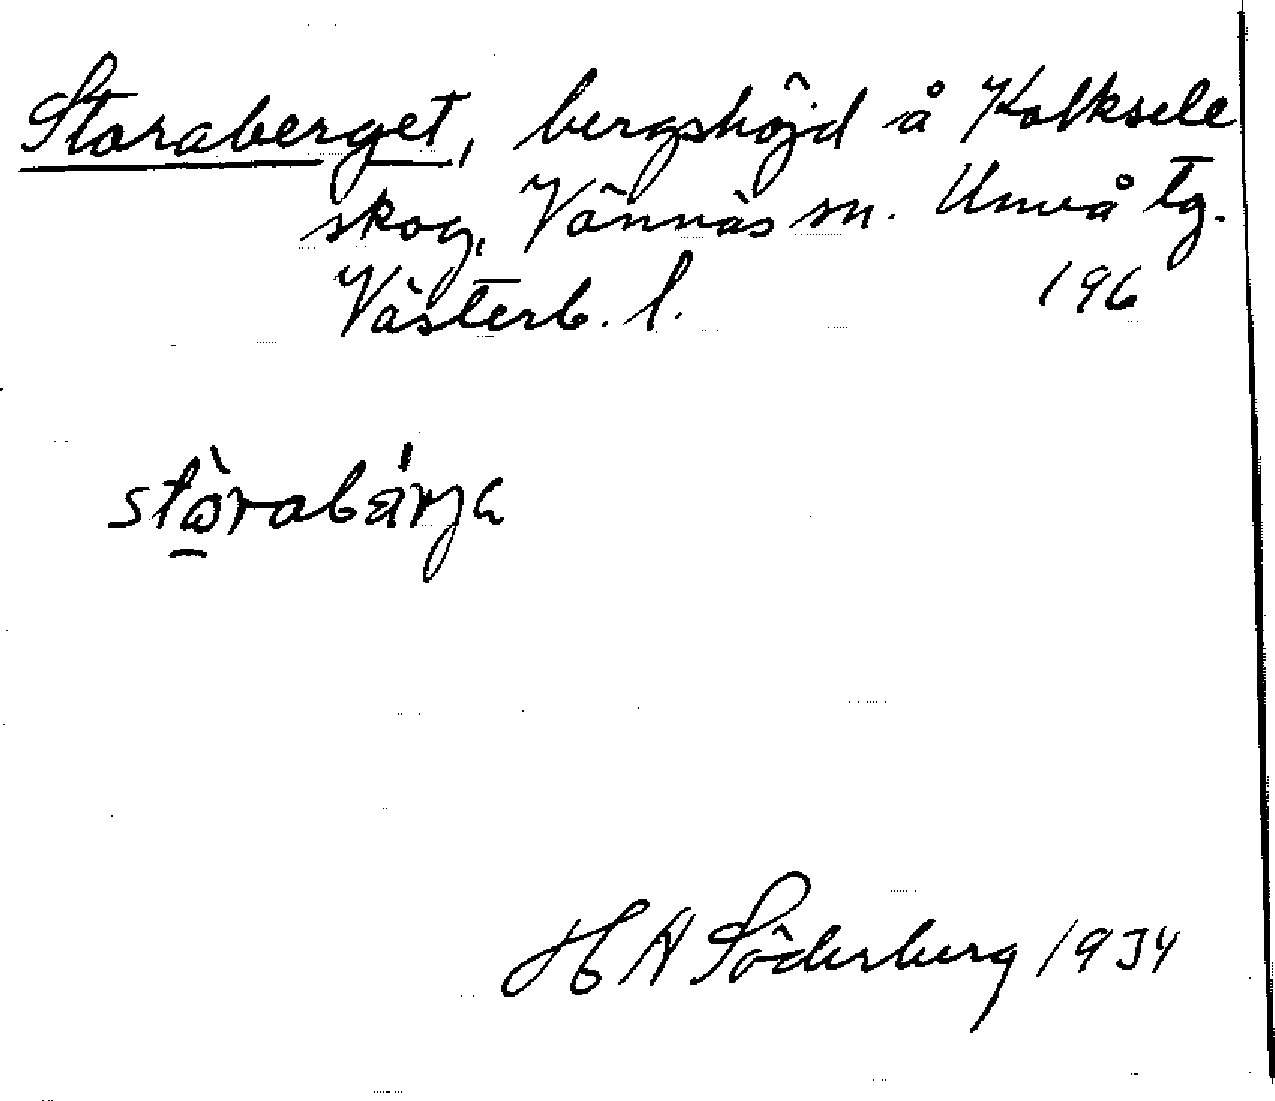 Storaberget, bergshöjd å Kolksele
skog, Vännäs sn. Umeå tg.
Västerb. l. 196
stòrabärja
H A Söderberg 1934